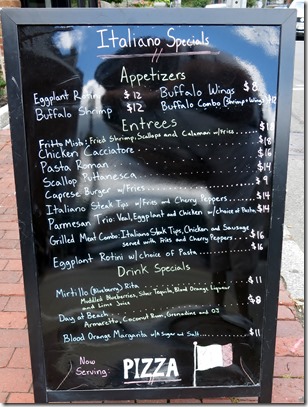 Italiano Specials
Appetizers
Eggplant Rotini $12
Buffalo Wings $8
Buffalo Shrimp $12
Buffalo Combo (Shrimp + Wings) $12
Entrees
Fritto Misto: Fried Shrimp, Scallops and Calamari w/fries.....$14
Chicken Cacciatore.....$18
Pasta Roman.....$16
Scallop Puttanesca.....
Caprese Burger w/Fries.....$14
Italiano Steak Tips w/Fries and Cherry Peppers.....$14
Parmesan Trio: Veal, Eggplant and Chicken w/choice of Pasta.
Grilled Meat Combo: Italiano Steak Tips, Chicken and Sausage
served with Fries and Cherry Peppers.....$16
Eggplant Rotini w/choice of Pasta.....$16
Drink Specials
Mirtillo (Blueberry) Rita.....$11
Muddled Blueberries, Silver Tequila, Blood Orange Liqueur
and Lime Juice
Day at Beach.....$8
Amaretto, Coconut Rum, Grenadine and OJ
Blood Orange Margarita w/a Sugar and Salt...$11
Now
Serving: PIZZA